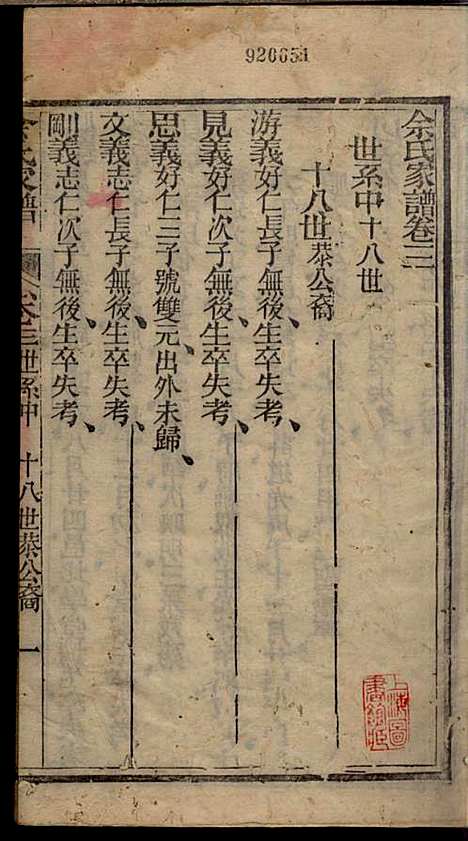 926651
余氏家譜卷三
世系中十八世
十八世恭公裔
游義好仁長子無後、生卒失考、
見義好仁次子無後、生卒失考、
思義好仁三子號雙元、出外未歸、
文義志仁長子無後、生卒失考、
剛義志仁次子無後、生卒失考、
余氏家譜 卷三世系中 十八世恭公裔 一
上海圖書館藏